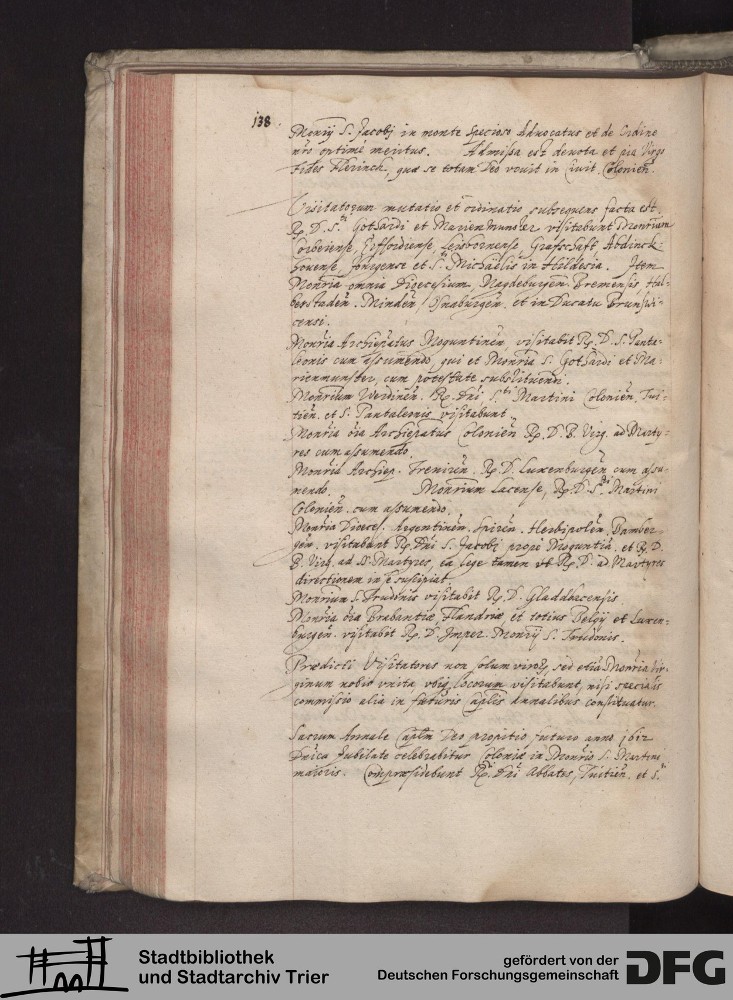 138.
Monrij S. Jacobj in monte specioso Advocatus et de Ordine
nrô optimè meritus. Admissa est devota et pia Virgo
Fides Flerinck, quæ se totam Deo vovit in Civit. Colonien̄.
Visitatorum mutatio et ordinatio subsequens facta est.
Rp. D. S.ti Gothardi et Marienmunster visitabunt Monriūm
Corbeiense, Hersfordiense, Leisbornense, Grafschafft, Abdinck-
hovense, et S. Michaëlis in Hildesia. Item
Monria omnia Diœcesium, Magdeburgen̄. Bremensis, Hal-
berstaden̄. Minden̄, Osnaburgen̄. et in Ducatu Brunswi-
censi.
Monria Archiepatus Moguntinen̄ visitabit Rp. D. S. Panta-
leonis cum assumendo, qui et Monria S. Gothardi et Ma-
rienmunster, cum potestate substituendi.
Monrium Werdinen̄. Rp. Dni S.ti Martini Colonien̄, Tui-
tien̄. et S. Pantaleonis visitabunt.
Monria oīa Archiepatus Colonien̄ Rp. D. B. Virg. ad Marty-
res cum assumendo.
Monria Archiep. Treviren̄. Rp. D. Luxenburgen̄ cum assu-
mendo. Monrium Lacense, Rp. D. S. Martini
Colonien̄. cum assumendo.
Monria Dioces. Argentinen̄. Spiren̄. Herbipolen̄, Bamber-
gen̄. visitabunt Rp. Dni S. Jacobi propè Moguntiā, et Rp. D.
B. Virg. ad SS. Martyres, ea lege tamen ut Rp. D. ad Martyres
directionem in se suscipiat.
Monrium S. Trudonis visitabit Rp. D. Gladbacensis
Monria oīa Brabantiæ, Flandriæ, et totius Belgij et Luxen-
burgen̄. visitabit Rp. D. Monrij S. Trudonis.
Prædicti Visitatores non solum virorū, sed etiā Monria Vir-
ginum nobis unita, ubiq. locorum visitabunt, nisi specialis
commissio alia in futuris Caplis Annalibus constituatur.
Sacrum Annale Caplm Deo propitio futuro anno 1612
Dnica Jubilate celebrabitur Coloniæ in Monrio S. Martini
maioris. Compræsidebunt Rp. Dni Abbates, Tuitien̄. et S.ti
Stadtbibliothek
und Stadtarchiv Trier
gefördert von der
Deutschen Forschungsgemeinschaft
DFG